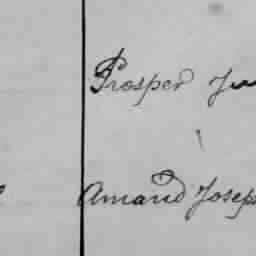 Prosper
Amand Joseph